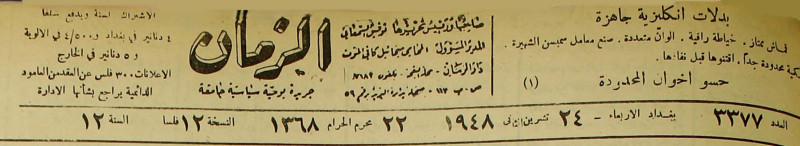 بدلات انكليزية جاهزة
قماش ممتاز . خياطة راقية . الوان متعددة . صنع معامل سمبسن الشهيرة .
كمية محدودة جداً . اقتنوها قبل نفاذها .
حسو اخوان المحدودة (١)
صاحبها ورئيس تحريرها توفيق السمعاني
المدير المسؤول: المحامي
دار الزمان
ص . ب ١١٣ - مسجلة بدائرة البريد برقم ٥٩
الزمان
جريدة يومية سياسية جامعة
الاشتراك لسنة ويدفع سلفا
٤ دنانير في بغداد و ٤/٥٠٠ في الالوية
و ٥ دنانير في الخارج
الاعلانات ٣٠٠ فلس عن العقد من العامود
الدائمية يراجع بشأنها الادارة
العدد ٣٣٧٧ بغداد الاربعاء - ٢٤ تشرين الثاني ١٩٤٨ ٢٢ محرم الحرام ١٣٦٨ النسخة ١٢ فلسا السنة ١٢